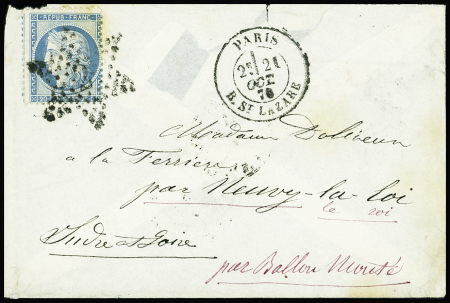 REPUB. FRANC.
PARIS
21
OCT.
70
R. ST LAZARE
Madame
à la Ferrière
par Neuvy-la-loi
le roi
Indre et Loire
par Ballon Monté